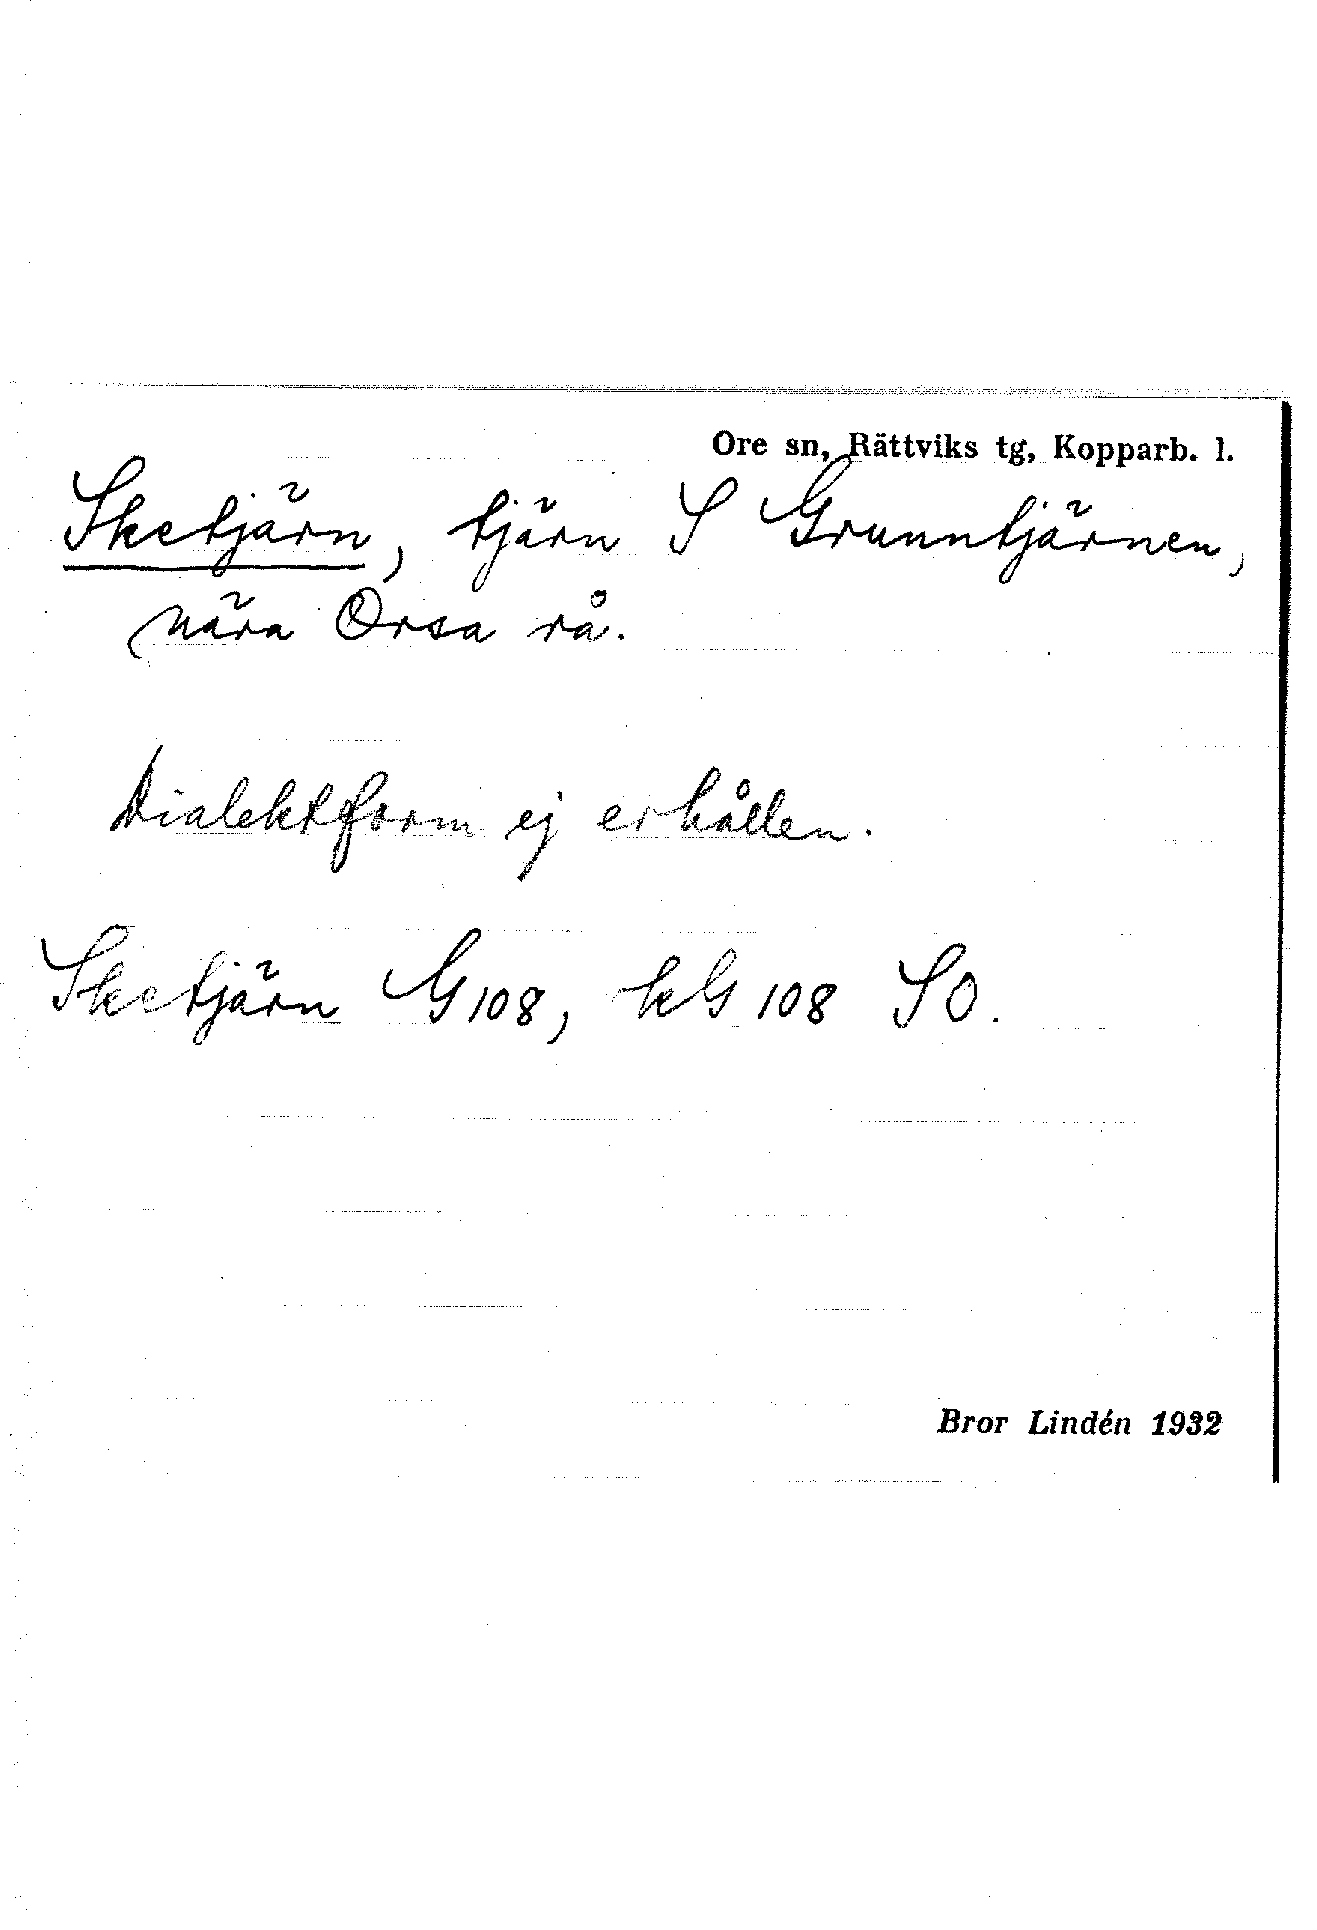 Ore sn, Rättviks tg, Kopparb. l.
Sketjärn, tjärn S Grunntjärnen,
nära Orsa rå.
Dialektform ej erhållen.
Sketjärn G 108, kG 108 SO.
Bror Lindén 1932